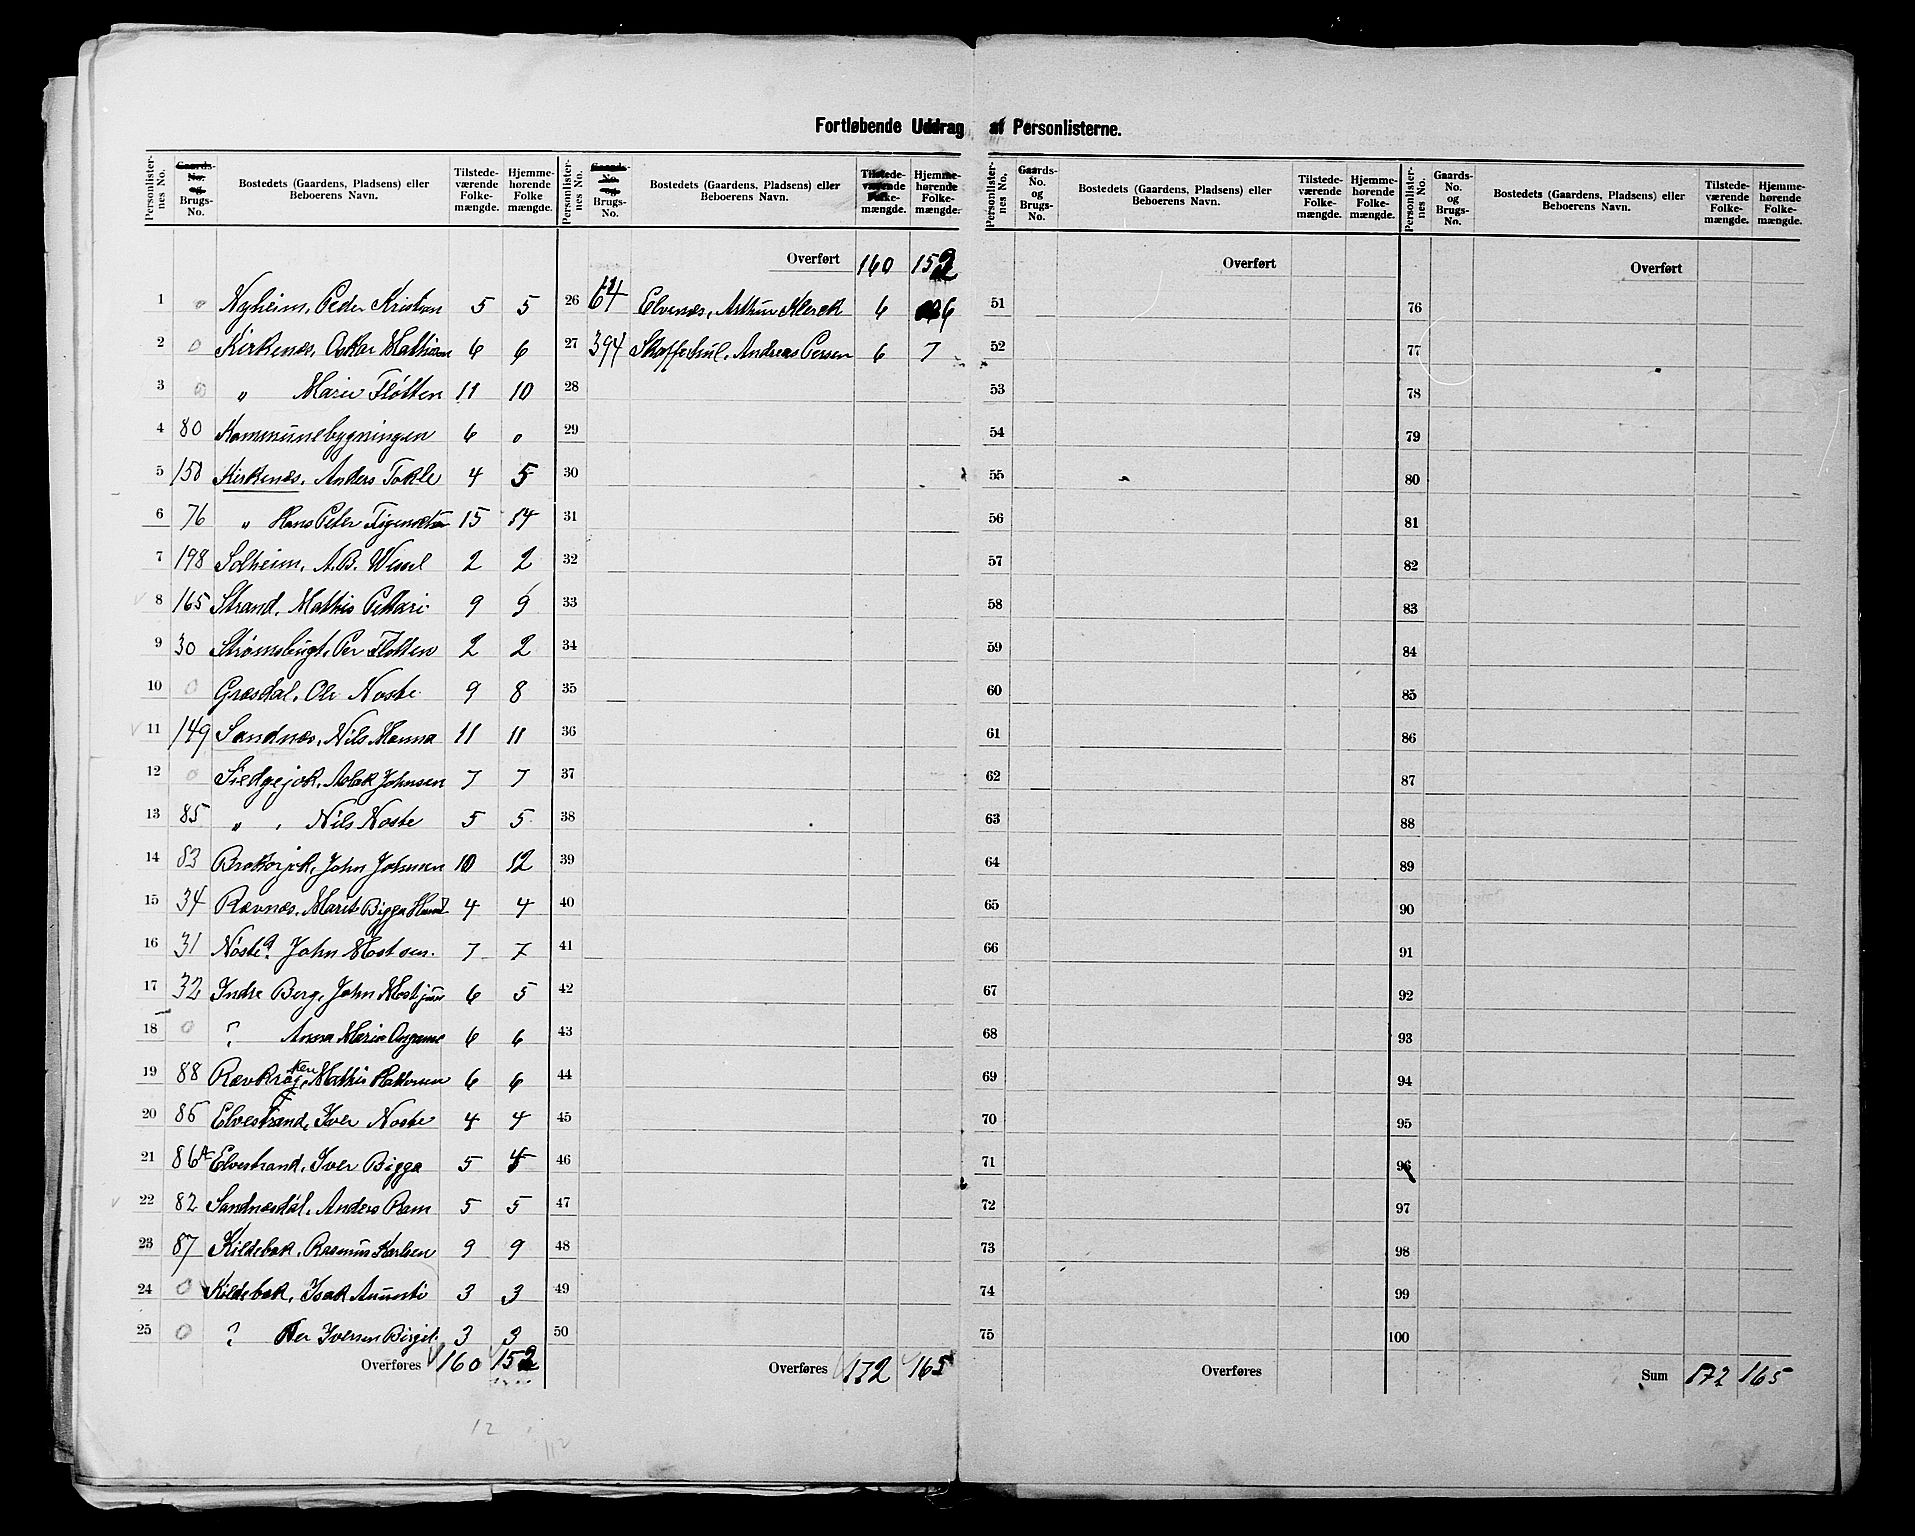 Fortløbende Uddrag af Personlisterne.
Personlisternes No. Gaards-No. og Brugs-No. Bostedets (Gaardens, Pladsens) eller Beboerens Navn. Tilstedeværende Folkemængde. Hjemmehørende Folkemængde.
1 0 Nyheim, Peder Kristian 5 5
2 0 Kirkenæs, Oskar Mathisen 6 6
3 0 " Marie Fløtten 11 10
4 80 Kommunebygningen 6 0
5 150 Kirkenæs, Anders Tokle 4 5
6 76 " Hans Peter 15 14
7 198 Solheim, A. B. Wessel 2 2
8 165 Strand, Mathis Pettari 9 9
9 30 Strømsbugt, Per Fløtten 2 2
10 0 Græsdal, Ole Noste 9 8
11 149 Sandnæs, Nils Manna 11 11
12 0 Aslak Johnsen 7 7
13 85 " , Nils Noste 5 5
14 83 John Johnsen 10 12
15 34 Rævnæs, Marit Bigga 4 4
16 31 Noste? John Mostsen. 7 7
17 32 Indre Berg, John 6 5
18 0 ? Anna Marie 6 6
19 88 Rævkrogken, Mathis 6 6
20 86 Elvestrand, Iver Noste 4 4
21 86A Elvestrand, Iver Bigga 5 4
22 82 Sandnæsdal, Anders Ram 5 5
23 87 Kildebæk, Rasmus Karlsen 9 9
24 0 Kildebæk, Isak 3 3
25 0 ? Per Iversen 3 3
Overføres 160 152
12
112
Personlisternes No. Gaards-No. og Brugs-No. Bostedets (Gaardens, Pladsens) eller Beboerens Navn. Tilstedeværende Folkemængde. Hjemmehørende Folkemængde.
Overført 160 152
26 64 Elvenæs, Arthur Klerck 6 6
27 394 Andreas Persen 6 7
28
29
30
31
32
33
34
35
36
37
38
39
40
41
42
43
44
45
46
47
48
49
50
Overføres 172 165
Personlisternes No. Gaards-No. og Brugs-No. Bostedets (Gaardens, Pladsens) eller Beboerens Navn. Tilstedeværende Folkemængde. Hjemmehørende Folkemængde.
Overført
51
52
53
54
55
56
57
58
59
60
61
62
63
64
65
66
67
68
69
70
71
72
73
74
75
Overføres
Personlisternes No. Gaards-No. og Brugs-No. Bostedets (Gaardens, Pladsens) eller Beboerens Navn. Tilstedeværende Folkemængde. Hjemmehørende Folkemængde.
Overført
76
77
78
79
80
81
82
83
84
85
86
87
88
89
90
91
92
93
94
95
96
97
98
99
100
Sum 172 165